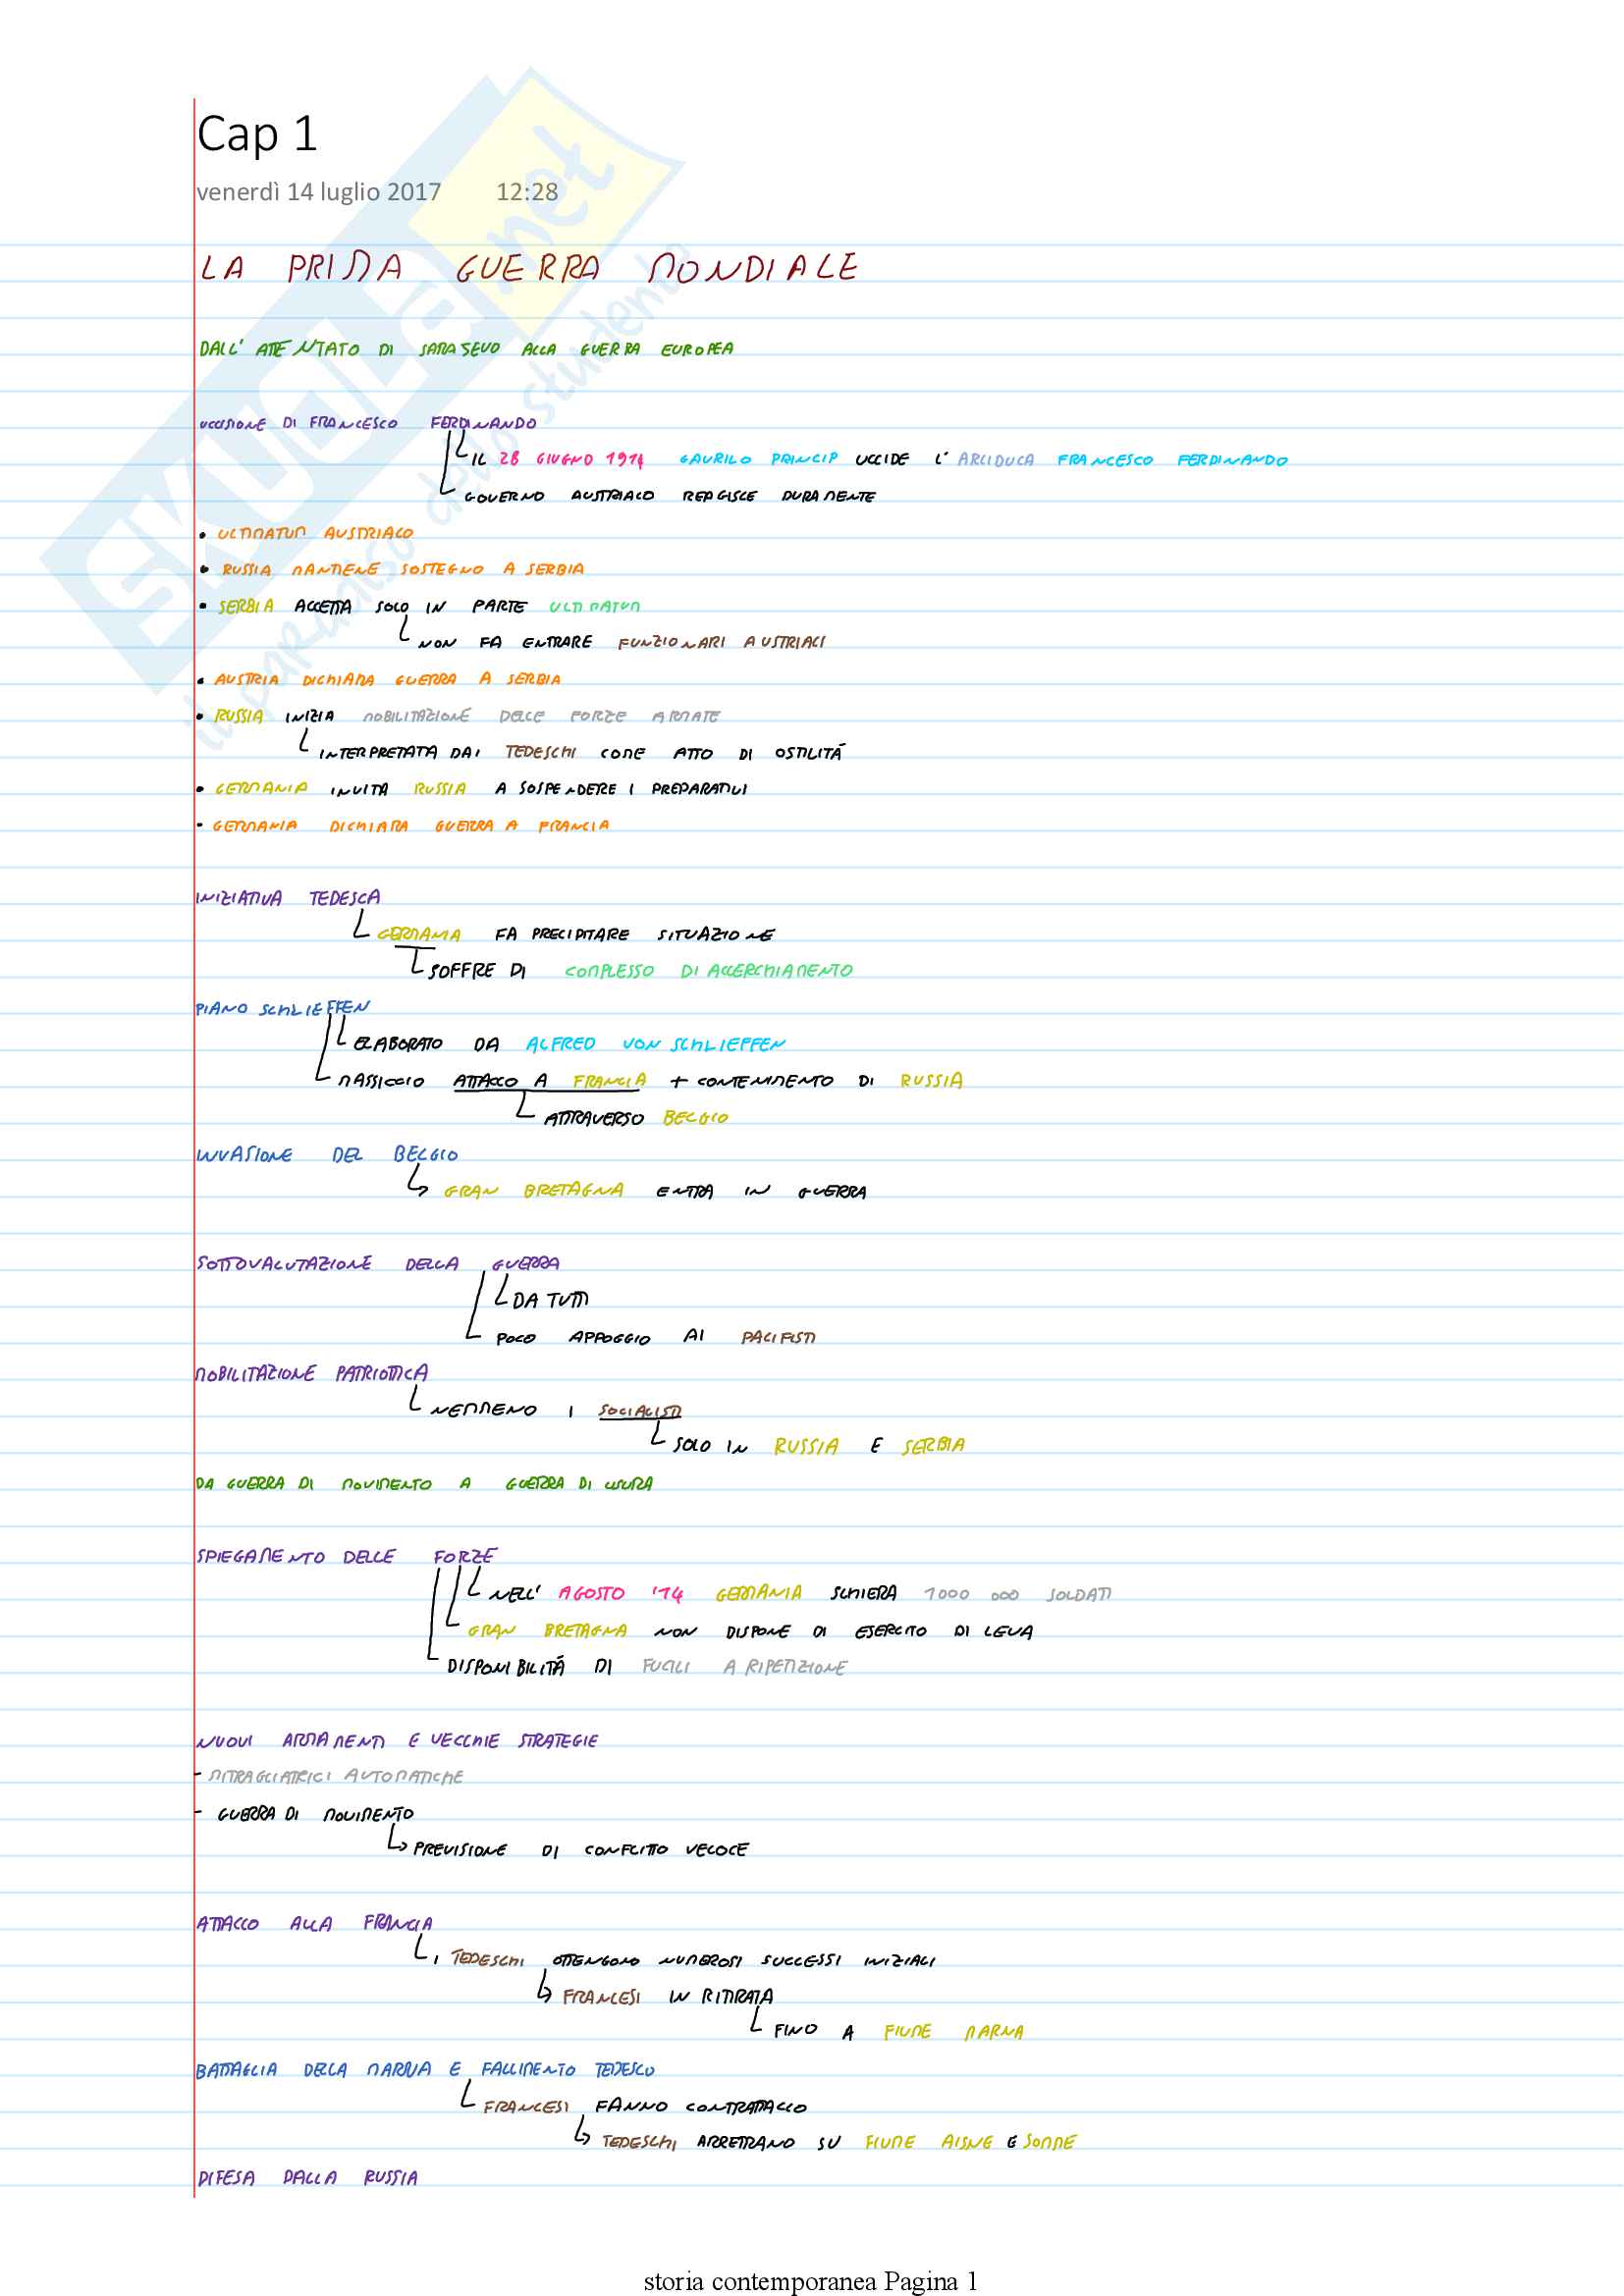 Cap 1
venerdì 14 luglio 2017 12:28
LA PRIMA GUERRA MONDIALE
DALL' ATTENTATO DI SARAJEVO ALLA GUERRA EUROPEA
UCCISIONE DI FRANCESCO FERDINANDO
IL 28 GIUGNO 1914 GAVRILO PRINCIP UCCIDE L' ARCIDUCA FRANCESCO FERDINANDO
GOVERNO AUSTRIACO REAGISCE DURAMENTE
• ULTIMATUM AUSTRIACO
• RUSSIA MANTIENE SOSTEGNO A SERBIA
• SERBIA ACCETTA SOLO IN PARTE ULTIMATUM
NON FA ENTRARE FUNZIONARI AUSTRIACI
• AUSTRIA DICHIARA GUERRA A SERBIA
• RUSSIA INIZIA MOBILITAZIONE DELLE FORZE ARMATE
INTERPRETATA DAI TEDESCHI COME ATTO DI OSTILITÁ
• GERMANIA INVITA RUSSIA A SOSPENDERE I PREPARATIVI
• GERMANIA DICHIARA GUERRA A FRANCIA
INIZIATIVA TEDESCA
GERMANIA FA PRECIPITARE SITUAZIONE
SOFFRE DI COMPLESSO DI ACCERCHIAMENTO
PIANO SCHLIEFFEN
ELABORATO DA ALFRED VON SCHLIEFFEN
MASSICCIO ATTACCO A FRANCIA + CONTENIMENTO DI RUSSIA
ATTRAVERSO BELGIO
INVASIONE DEL BELGIO
GRAN BRETAGNA ENTRA IN GUERRA
SOTTOVALUTAZIONE DELLA GUERRA
DA TUTTI
POCO APPOGGIO AI PACIFISTI
MOBILITAZIONE PATRIOTTICA
NEMMENO I SOCIALISTI
SOLO IN RUSSIA E SERBIA
DA GUERRA DI MOVIMENTO A GUERRA DI USURA
SPIEGAMENTO DELLE FORZE
NELL' AGOSTO '14 GERMANIA SCHIERA 1000 000 SOLDATI
GRAN BRETAGNA NON DISPONE DI ESERCITO DI LEVA
DISPONIBILITÁ DI FUCILI A RIPETIZIONE
NUOVI ARMAMENTI E VECCHIE STRATEGIE
- MITRAGLIATRICI AUTOMATICHE
- GUERRA DI MOVIMENTO
PREVISIONE DI CONFLITTO VELOCE
ATTACCO ALLA FRANCIA
I TEDESCHI OTTENGONO NUMEROSI SUCCESSI INIZIALI
FRANCESI IN RITIRATA
FINO A FIUME MARNA
BATTAGLIA DELLA MARNA E FALLIMENTO TEDESCO
FRANCESI FANNO CONTRATTACCO
TEDESCHI ARRETRANO SU FIUME AISNE E SOMME
DIFESA DALLA RUSSIA
storia contemporanea Pagina 1
SKUOLA.net
il paradiso dello studente